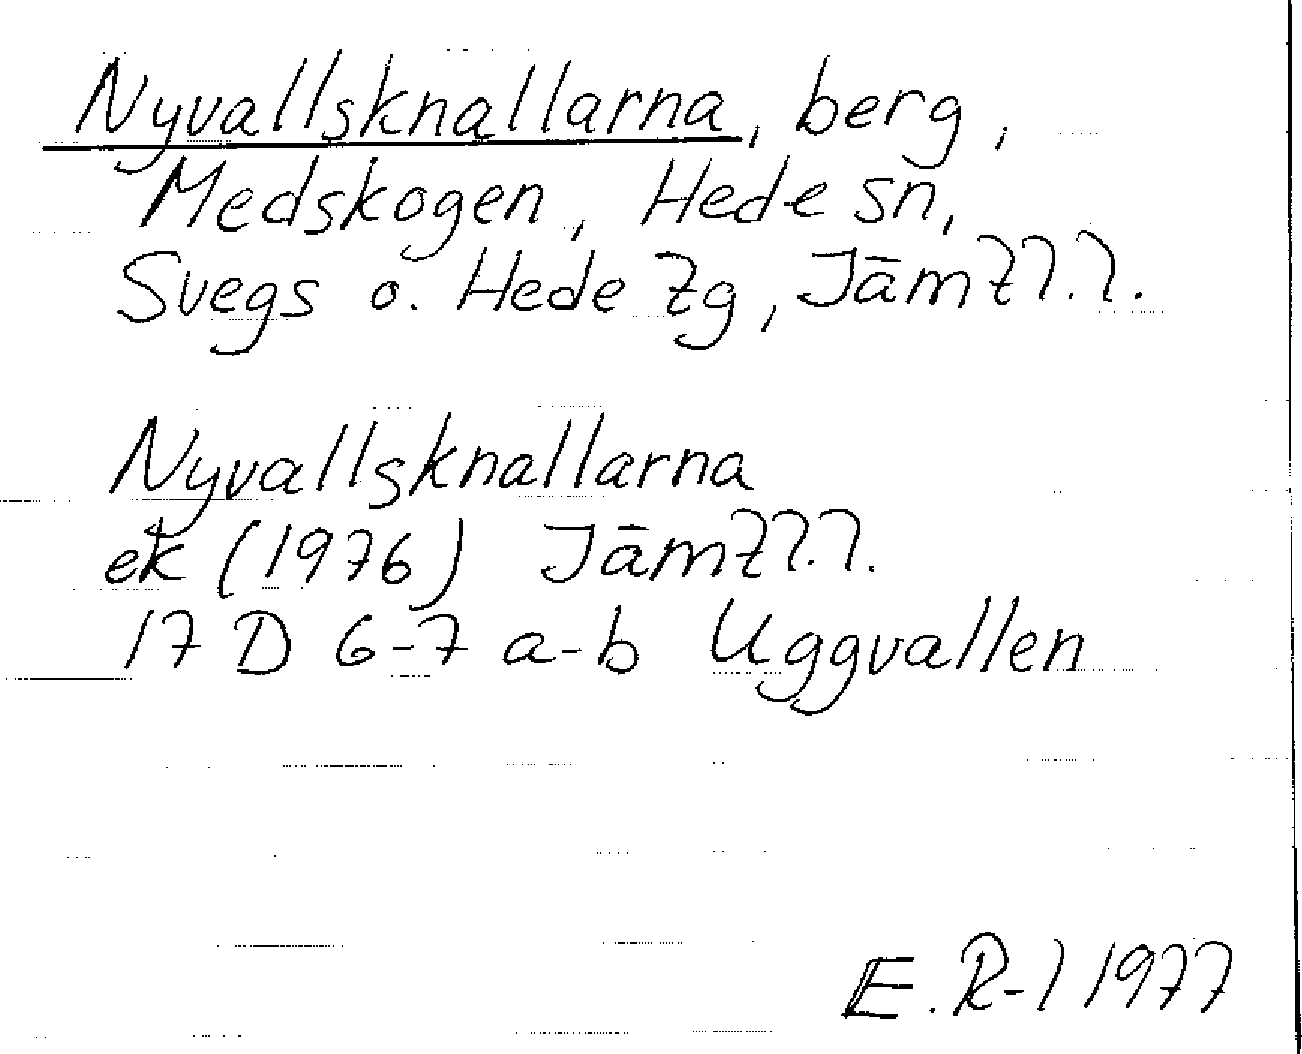 Nyvallsknallarna, berg,
Medskogen, Hede sn,
Svegs o. Hede tg, Jämtl. l.
Nyvallsknallarna
ek (1976) Jämtl. l.
17 D 6-7 a-b Uggvallen
E. R-l 1977